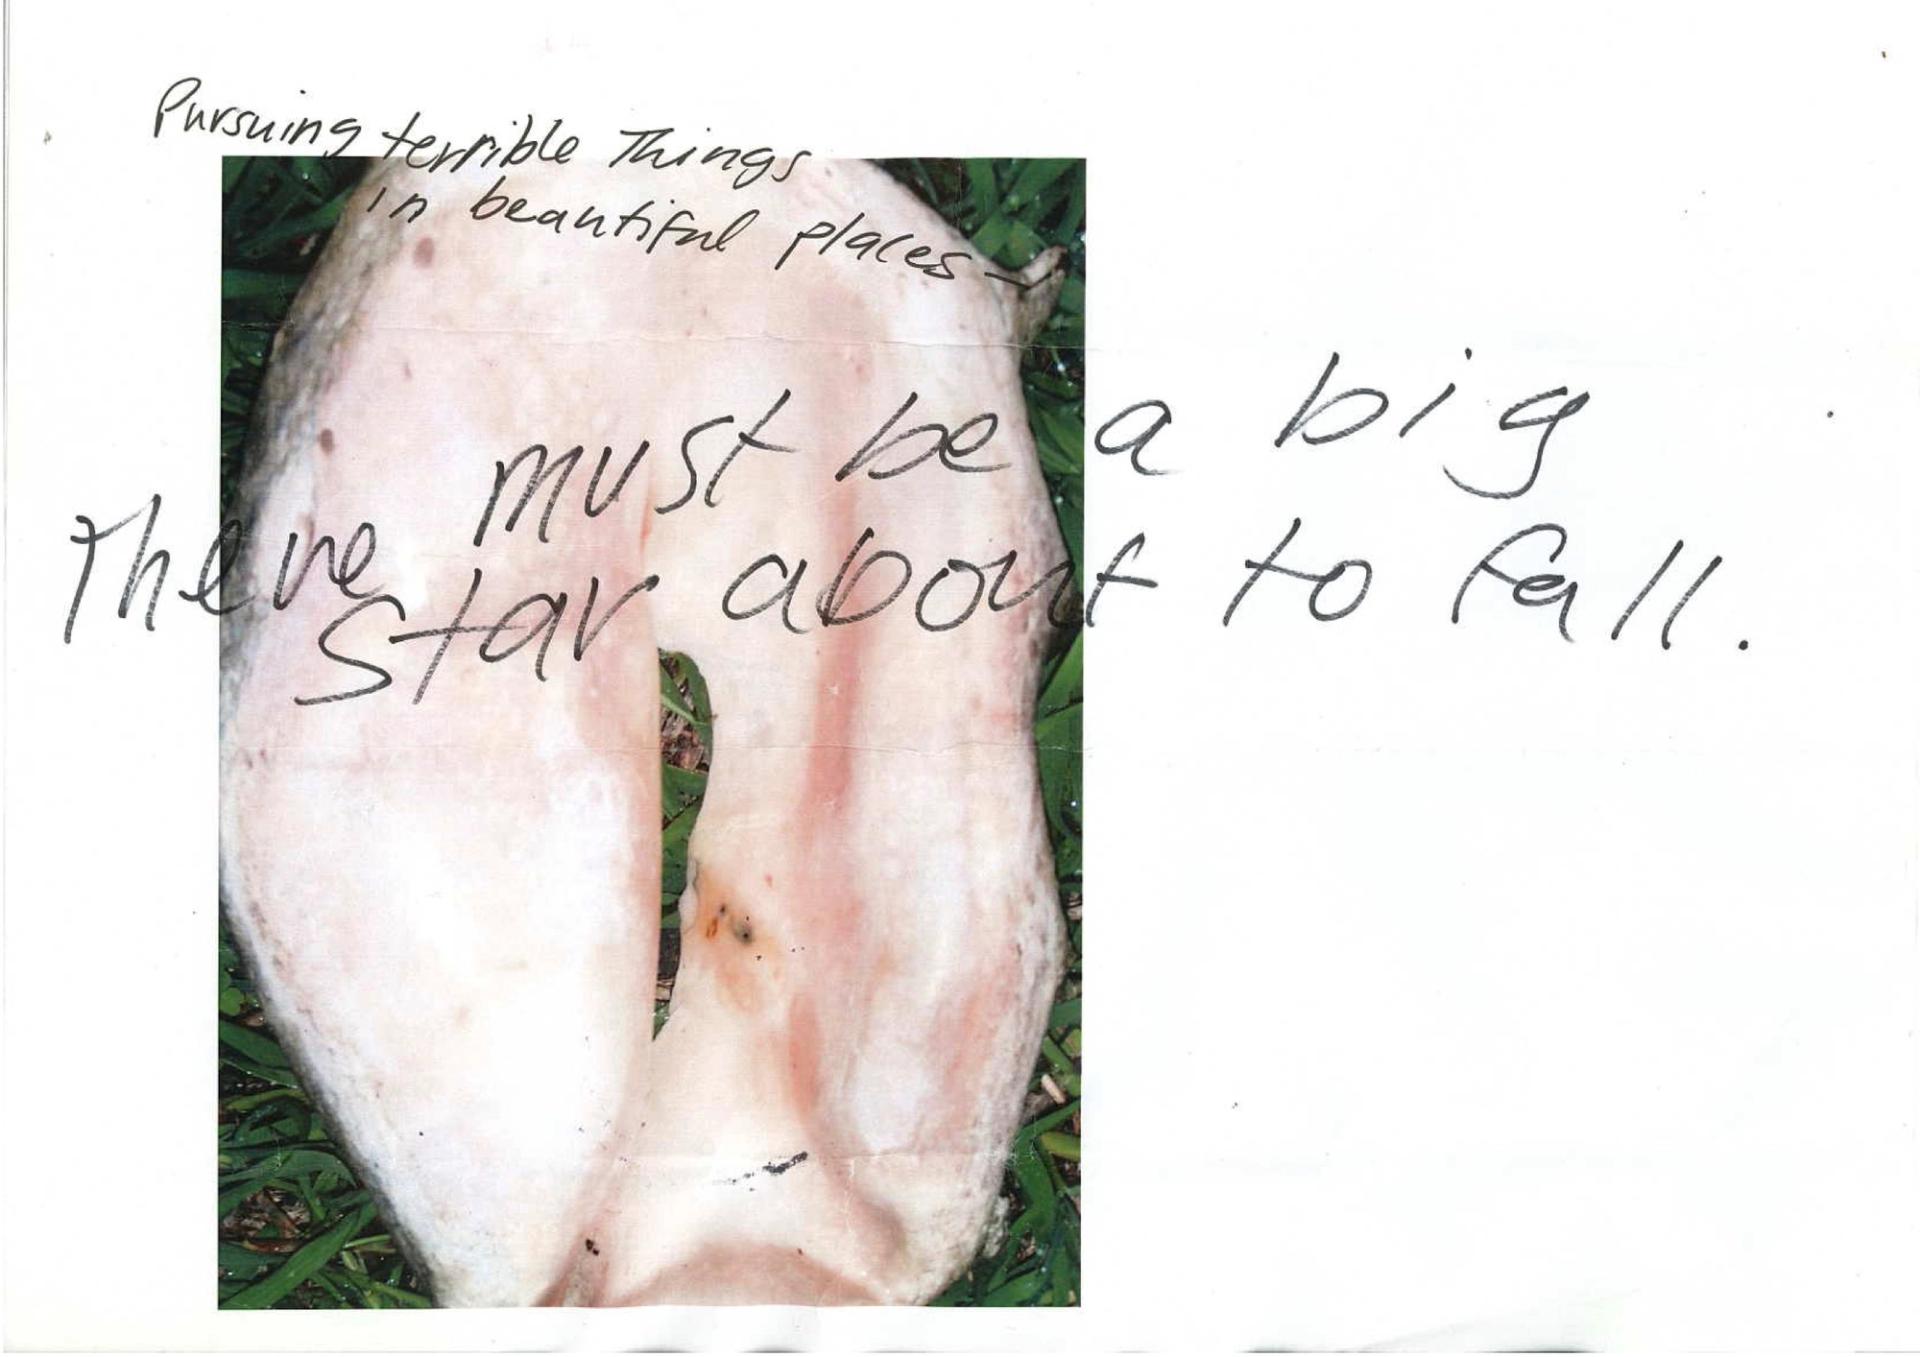 Pursuing terrible Things
in beautiful places —
There must be a big
star about to fall.